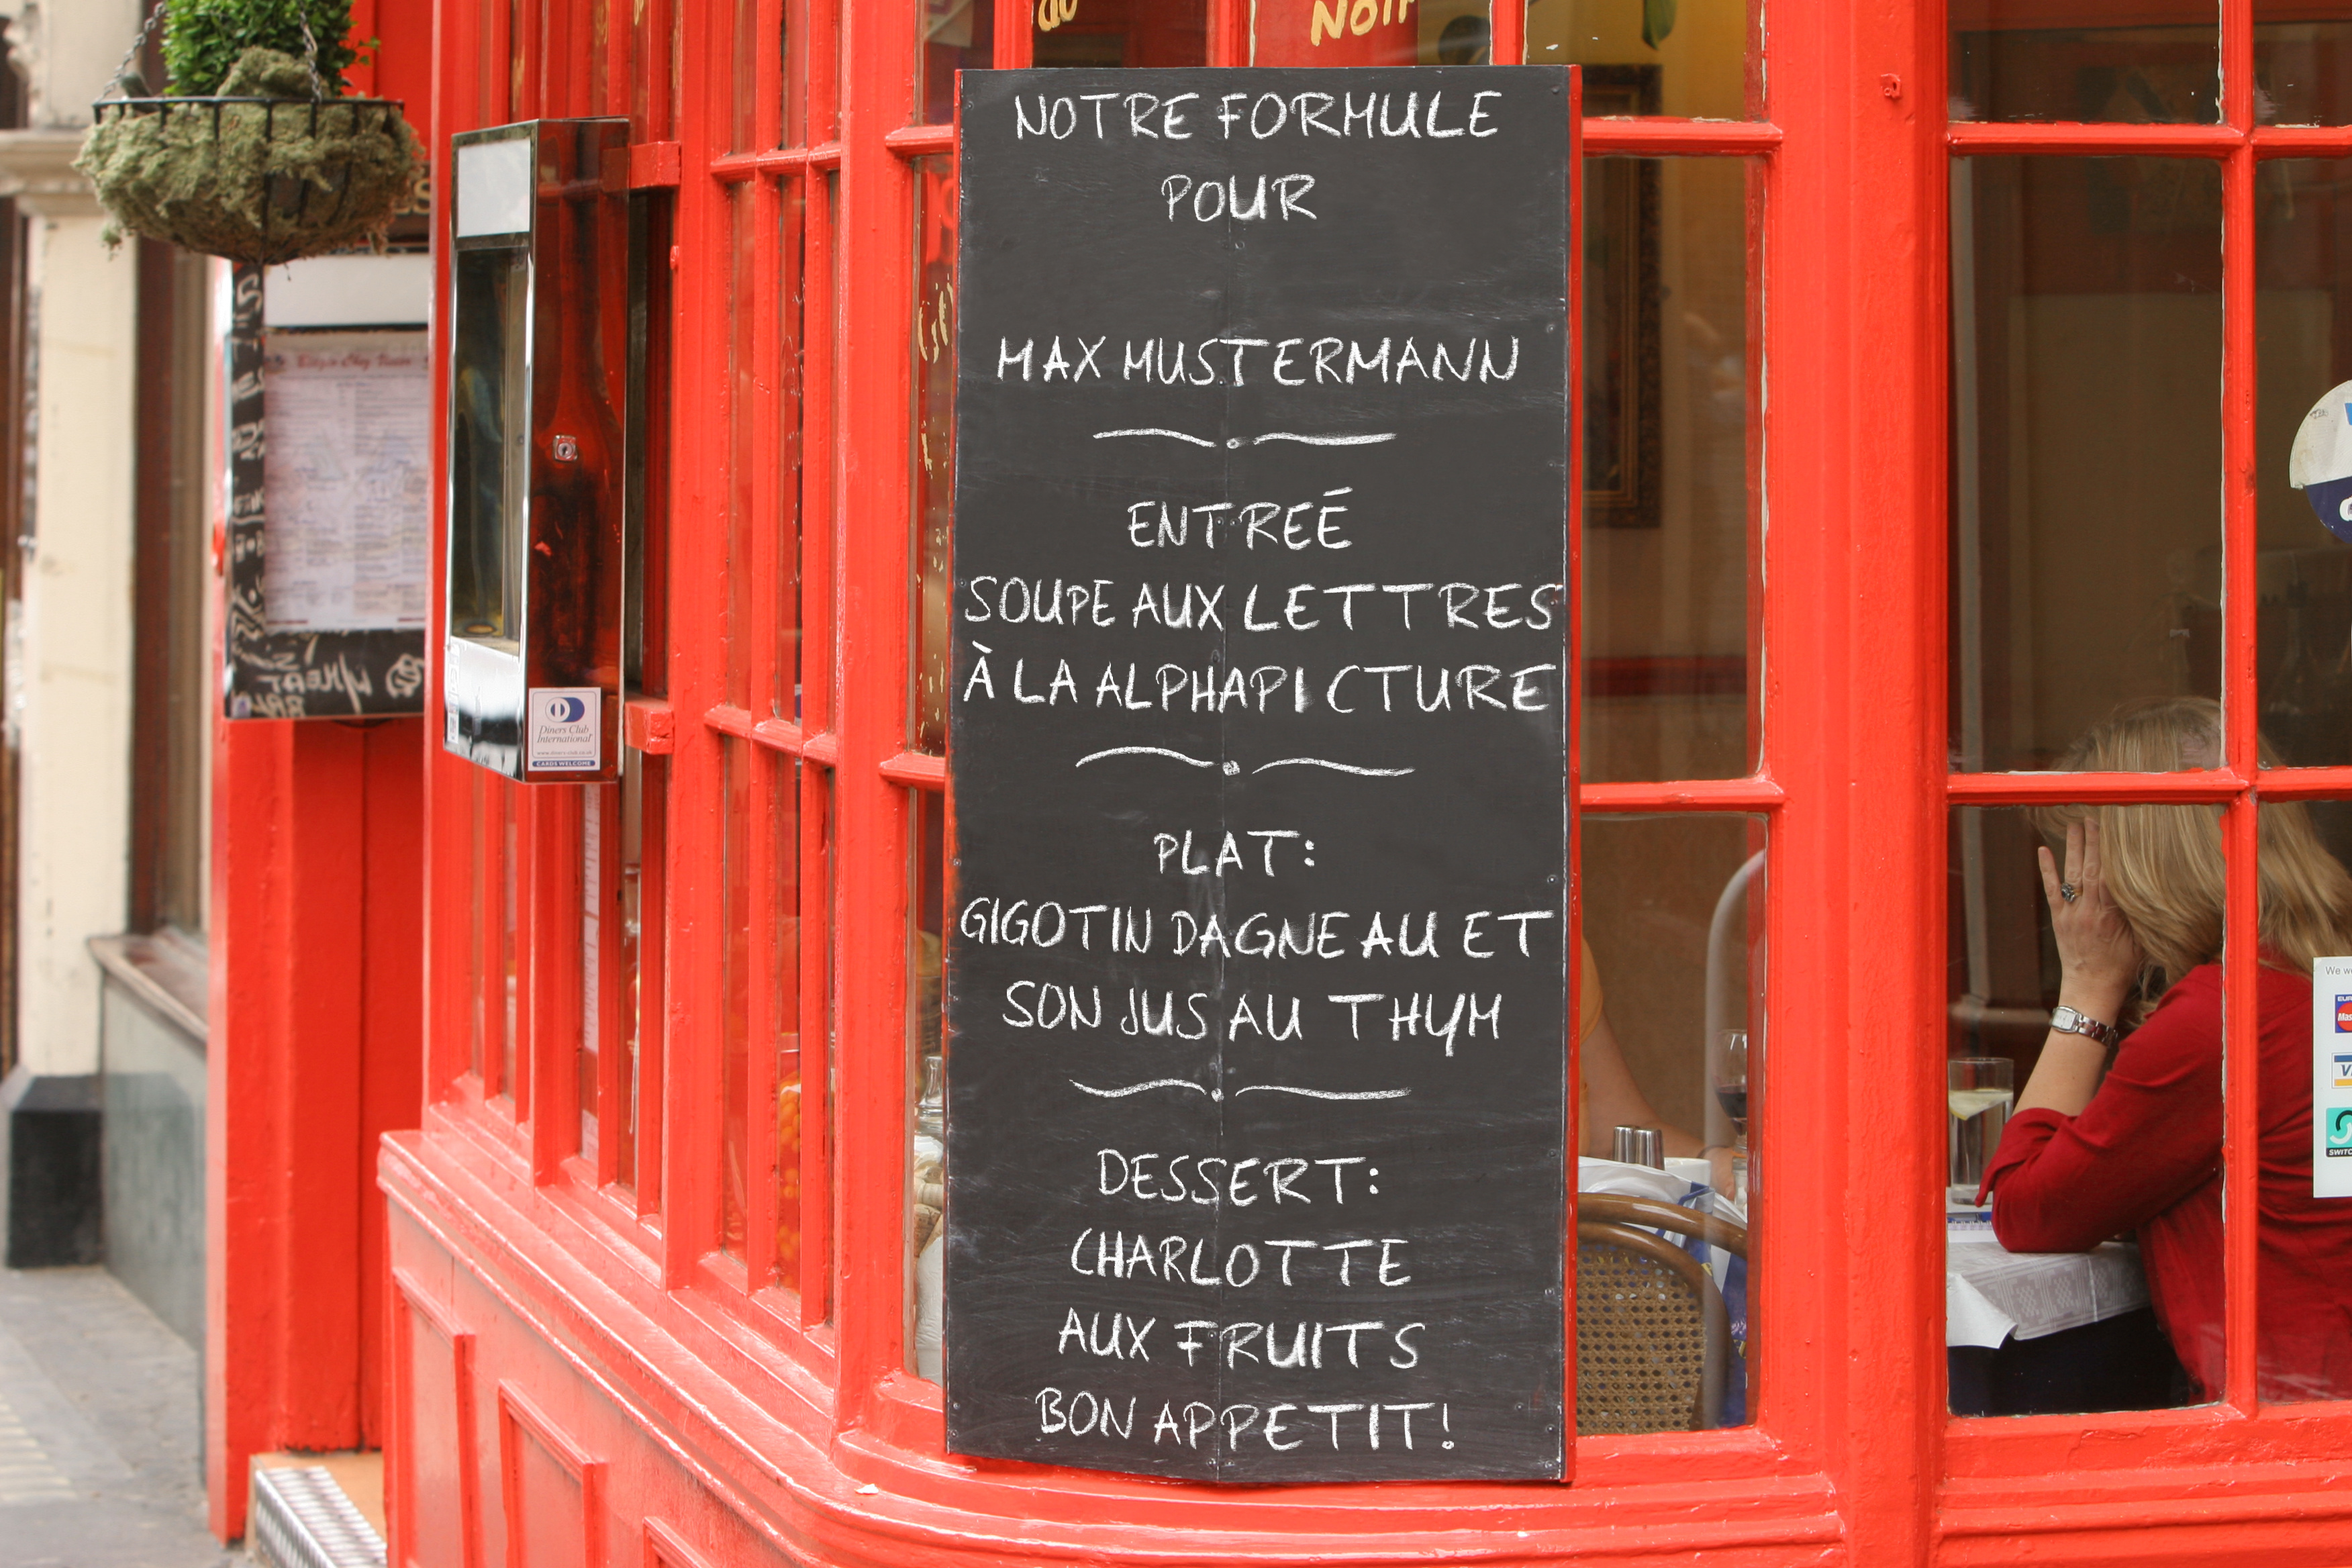 NOIR
NOTRE FORMULE
POUR
MAX MUSTERMANN
ENTREÉ
SOUPE AUX LETTRES
À LA ALPHAPICTURE
PLAT:
GIGOTIN DAGNEAU ET
SON JUS AU THYM
DESSERT:
CHARLOTTE
AUX FRUITS
BON APPETIT!
Diners Club
International
CARDS WELCOME